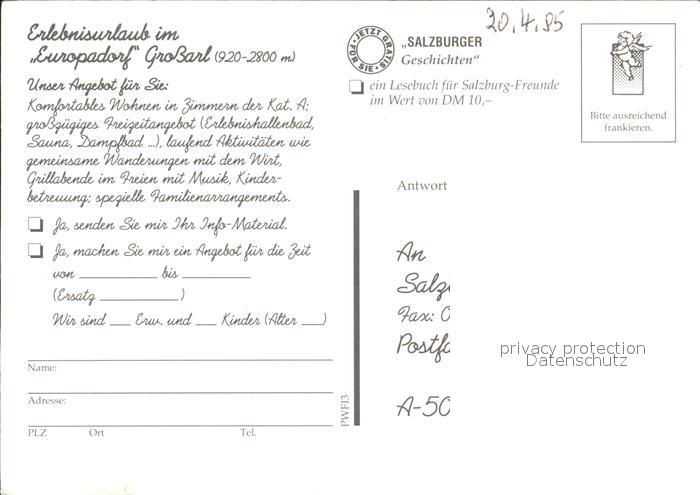 Erlebnisurlaub im
„Europadorf" Großarl (920-2800 m)
Unser Angebot für Sie:
Komfortables Wohnen in Zimmern der Kat. A;
großzügiges Freizeitangebot (Erlebnishallenbad,
Sauna, Dampfbad ...), laufend Aktivitäten wie
gemeinsame Wanderungen mit dem Wirt,
Grillabende im Freien mit Musik, Kinder-
betreuung; spezielle Familienarrangements.
Ja, senden Sie mir Ihr Info-Material.
Ja, machen Sie mir ein Angebot für die Zeit
von __________ bis __________
(Ersatz __________)
Wir sind ___ Erw. und ___ Kinder (Alter ___)
Name:
Adresse:
PLZ Ort Tel.
PWFI3
20.4.95
JETZT GRATIS FÜR SIE
„SALZBURGER
Geschichten"
ein Lesebuch für Salzburg-Freunde
im Wert von DM 10,–
Bitte ausreichend
frankieren.
Antwort
An
Salz
Fax: 0
Postfa
A-50
privacy protection
Datenschutz